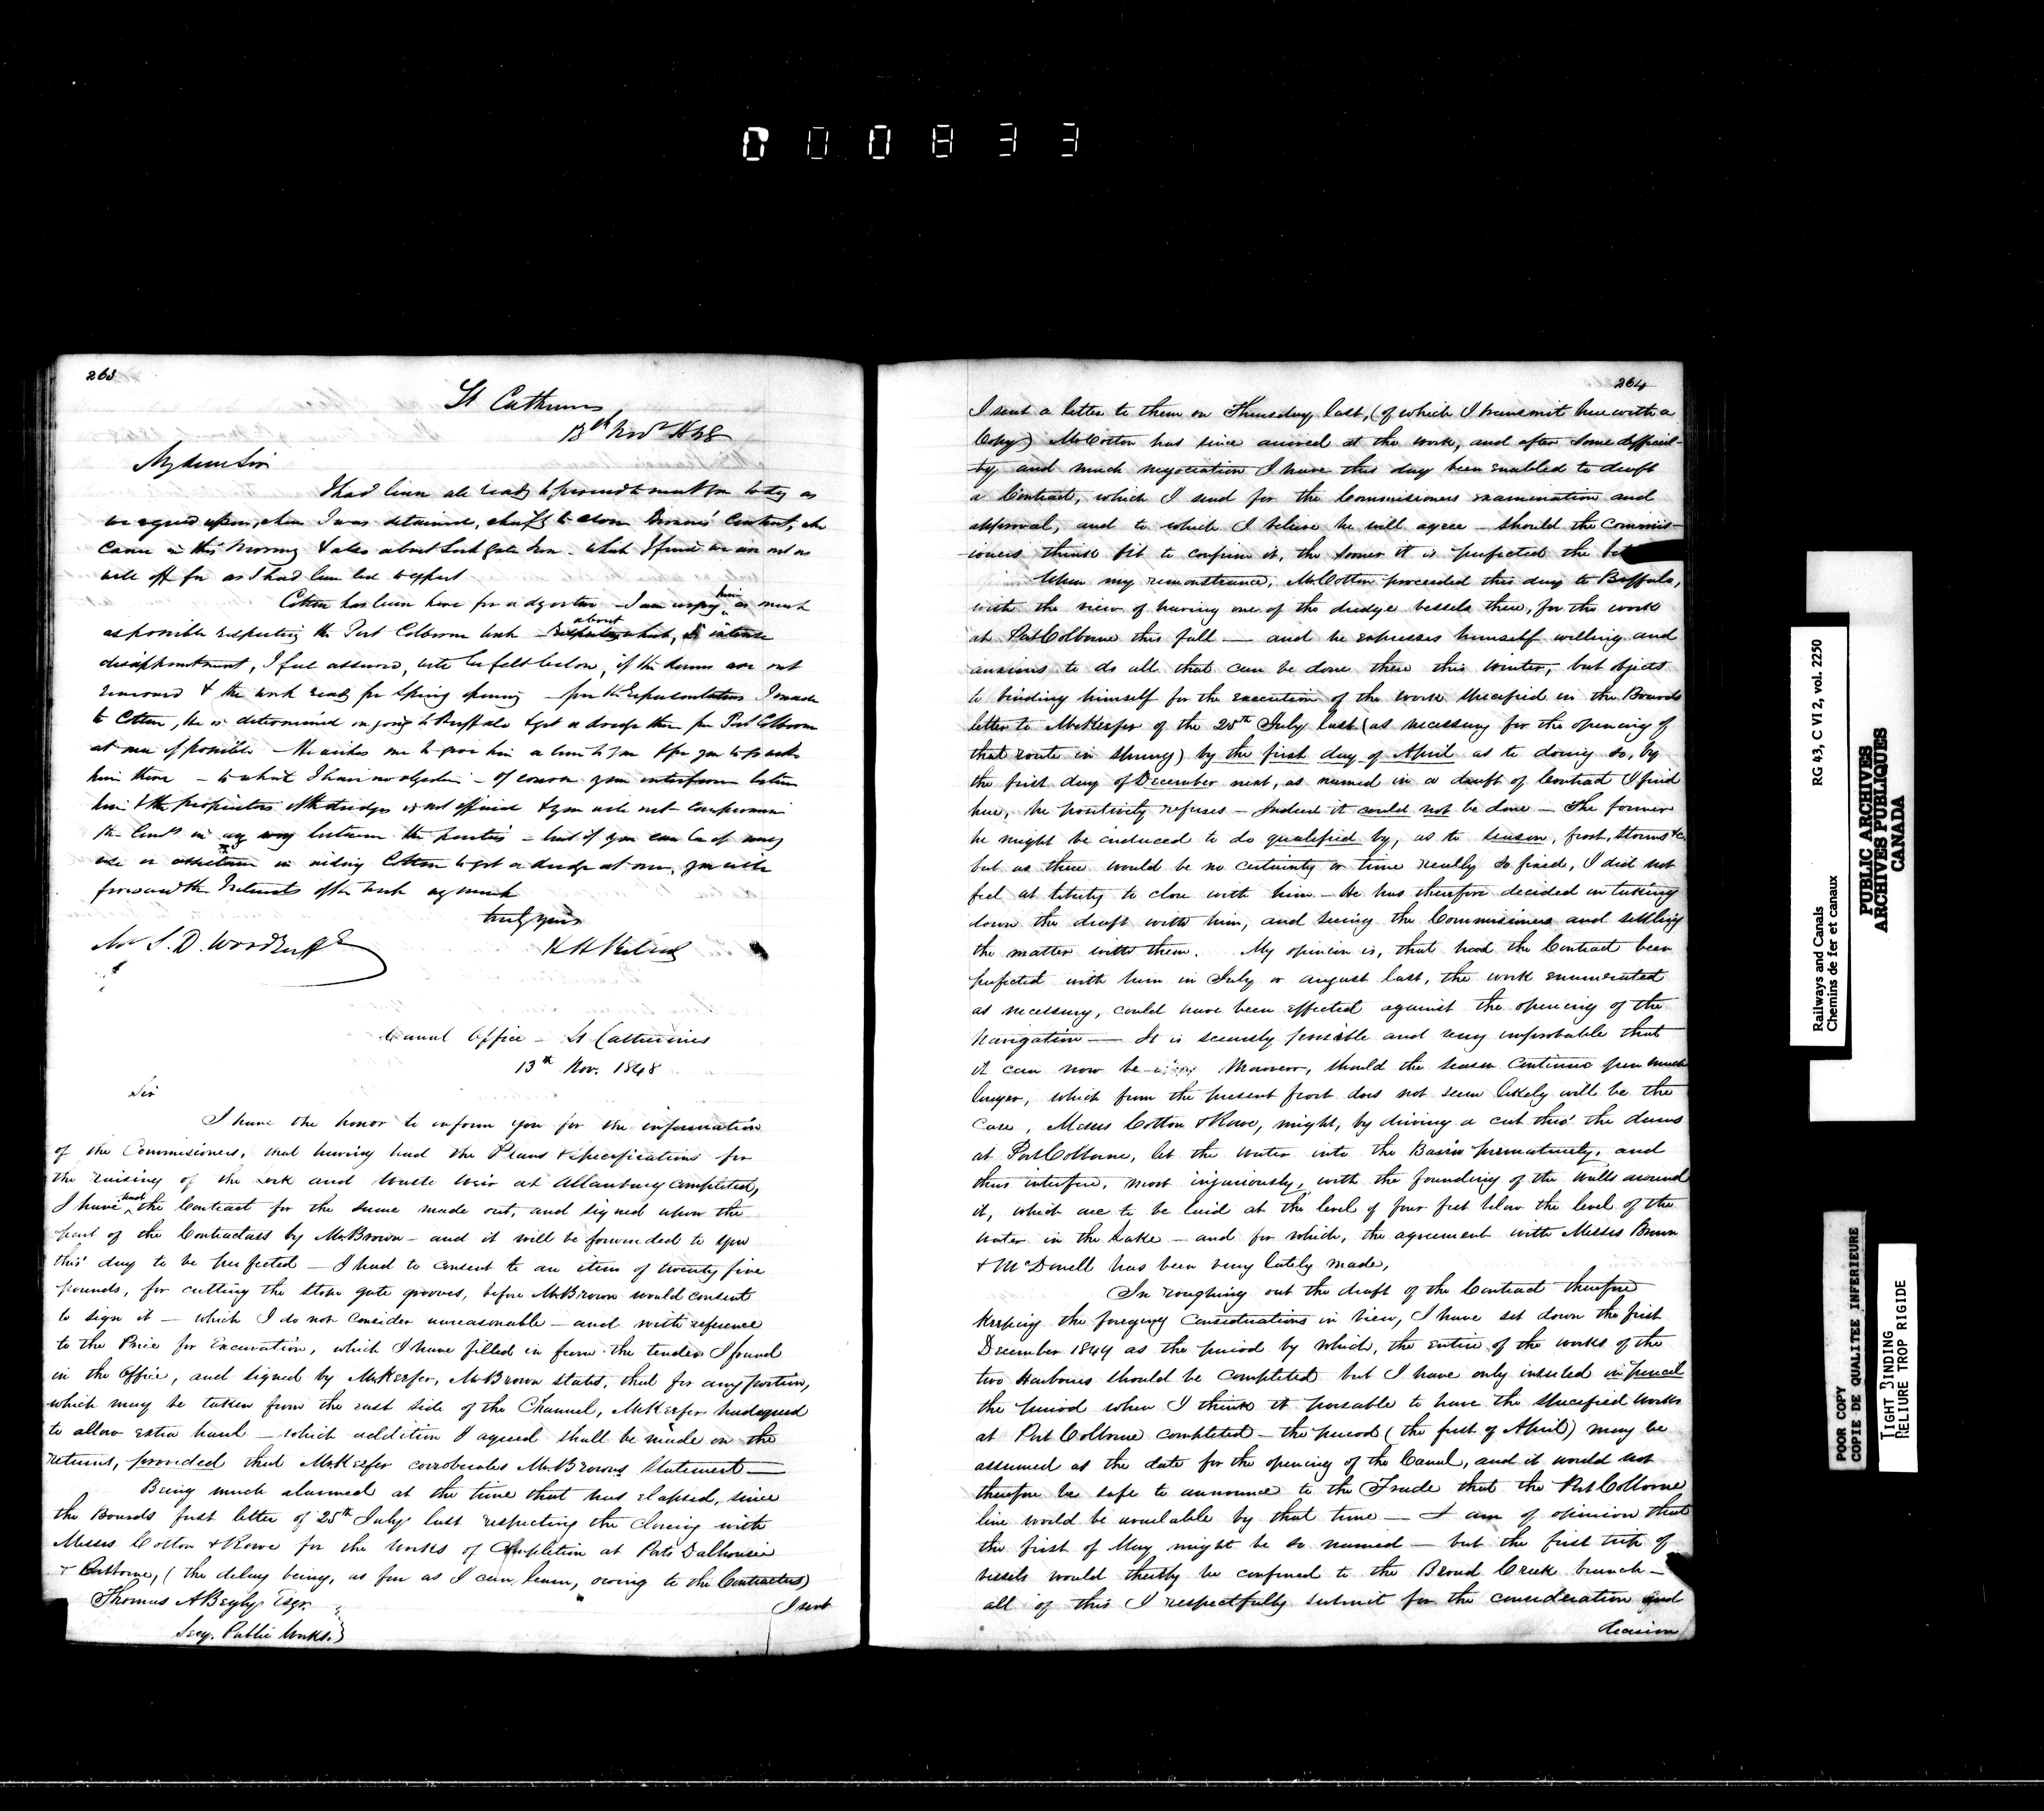 000833
263
St Catherines
13th Novr 1848
My dear Sir
I had been all ready to proceed to meet you to day as
we agreed upon, when I was detained, chiefly to close Brown's Contract, who
came in this morning & also about Lock Gate Iron - which I find we are not as
well off for as I had been led to expect
Cotton has been here for a day or two - I am urging him as much
as possible respecting the Port Colborne work - about which, intense
disappointment, I feel assured, will be felt below, if the dams are not
removed & the work ready for Spring opening - from the representations I made
to Cotton, he is determined on going to Buffalo & get a dredge there for Port Colborne
at once if possible - He wishes me to give him a line to you & for you to go with
him there - to which I have no objection - of course your interference between
him & the proprietors of the dredges is not official & you will not compromise
the in any way between the parties - but if you can be of any
use or assistance in aiding Cotton to get a dredge at once, you will
forward the Interests of the work very much
truly yours
H H Killaly
Mr S. D. Woodruff
Canal Office - St Catherines
13th Nov. 1848
Sir
I have the honor to inform you for the information
of the Commissioners, that having had the Plans & specifications for
the raising of the Lock and Waste Weir at Allanburg completed,
I have had the Contract for the same made out, and signed upon the
part of the Contractors by Mr Brown - and it will be forwarded to you
this day to be perfected - I had to consent to an item of twenty five
pounds, for cutting the stop gate grooves, before Mr Brown would consent
to sign it - which I do not consider unreasonable - and with reference
to the Price for Excavation, which I have filled in from the tender I found
in the Office, and signed by Mr Keefer, Mr Brown states, that for any portion,
which may be taken from the east side of the Channel, Mr Keefer had agreed
to allow extra haul - which addition I agreed shall be made on the
returns, provided that Mr Keefer corroborates Mr Browns Statement -
Being much alarmed at the time that has elapsed, since
the Boards first letter of 25th July last respecting the closing with
Messrs Cotton & Rowe for the works of Completion at Ports Dalhousie
& Colborne, (the delay being, as far as I can learn, owing to the Contractors)
Thomas A Begly Esqr.
Secy. Public Works.
I sent
264
I sent a letter to them on Thursday last, (of which I transmit herewith a
Copy) Mr Cotton has since arrived at the work, and after some difficul-
-ty and much negociation I have this day been enabled to draft
a Contract, which I send for the Commissioners examination and
approval, and to which I believe he will agree - should the Commis-
-ioners think fit to confirm it, the sooner it is perfected the
Upon my remonstrance, Mr Cotton proceeded this day to Buffalo,
with the view of having one of the dredge vessels there, for the work
at Port Colborne this fall - and he expresses himself willing and
anxious to do all that can be done there this winter, but objects
to binding himself for the execution of the work specified in the Boards
letter to Mr Keefer of the 25th July last (as necessary for the opening of
that route in spring) by the first day of April as to doing so, by
the first day of December next, as named in a draft of Contract I find
here, he positively refuses - Indeed it could not be done - The former
he might be induced to do qualified by, as to season, frost, storms &c.
but as there would be no certainty or time really so fixed, I did not
feel at liberty to close with him - He has therefore decided on taking
down the draft with him, and seeing the Commissioners and settling
the matter with them. My opinion is, that had the Contract been
perfected with him in July or August last, the work enumerated
as necessary, could have been effected against the opening of the
Navigation - It is scarcely possible and very improbable that
it can now be Moreover, should the season continue open much
longer, which from the present frost does not seem likely will be the
Case, Messrs Cotton & Rowe, might, by driving a cut thro' the dams
at Port Colborne, let the water into the Basin prematurely, and
thus interfere, most injuriously, with the founding of the walls around
it, which are to be laid at the level of four feet below the level of the
water in the Lake - and for which, the agreement with Messrs Brown
& McDonell has been very lately made,
In roughing out the draft of the Contract therefore
keeping the foregoing considerations in view, I have set down the first
December 1849 as the period by which, the entire of the works of the
two Harbours should be completed but I have only inserted in pencil
the period when I think it possable to have the specified works
at Port Colborne completed - the period (the first of April) may be
assumed as the date for the opening of the Canal, and it would not
therefore be safe to announce to the Trade that the Port Colborne
line would be available by that time - I am of opinion that
the first of May might be so named - but the first trip of
vessels would thereby be confined to the Broad Creek branch -
all of this I respectfully submit for the consideration and
decision
Railways and Canals RG 43, C VI 2, vol. 2250
Chemins de fer et canaux
PUBLIC ARCHIVES
ARCHIVES PUBLIQUES
CANADA
POOR COPY
COPIE DE QUALITEE INFERIEURE
TIGHT BINDING
RELIURE TROP RIGIDE